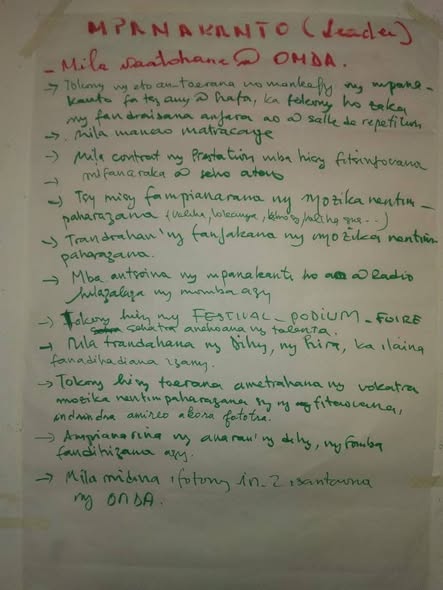 MPANAKANTO (Leader)
- Mila raatohana @ OMDA.
→ Tokony ny eto an-toerana no mankafy ny mpana-
kanto fa tsy any @ hafa, ka tokony ho zaka
ny fandraisana anjara ao @ salle de repetition
→ Mila manao matracage
→ Mila contrat ny Prestation mba hisy fitsinjovana
→ mifanaraka @ seho atao
→ Tsy misy fampianarana ny mozika nentim-
paharazana (valiha, lokanga,
→ Trandrahan'ny fanjakana ny mozika nentim
paharazana.
→ Mba antsoina ny mpanakanto ho @ Radio
hilazalaza ny momba azy
→ Tokony hisy ny FESTIVAL - PODIUM - FOIRE
sehatra anehoana ny talenta.
→ Mila trandrahana ny dihy, ny hira, ka ilaina
fanadihadiana izany.
→ Tokony hisy toerana ametrahana ny vokatra
mozika nentim paharazana sy ny fitaovana,
indrindra amireo akora fototra.
→ Ampianarina ny anaran'ny dihy, ny fomba
fandihizana azy.
→ Mila midina ifotony in-2 isantaona
ny OMDA.